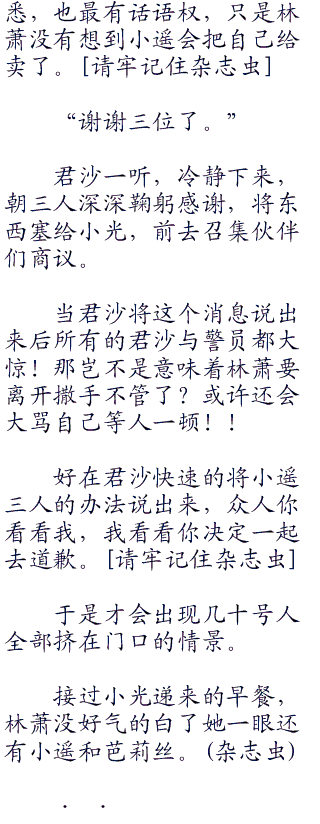 悉，也最有话语权，只是林
萧没有想到小遥会把自己给
卖了。[请牢记住杂志虫]
“谢谢三位了。”
君沙一听，冷静下来，
朝三人深深鞠躬感谢，将东
西塞给小光，前去召集伙伴
们商议。
当君沙将这个消息说出
来后所有的君沙与警员都大
惊！那岂不是意味着林萧要
离开撒手不管了？或许还会
大骂自己等人一顿！！
好在君沙快速的将小遥
三人的办法说出来，众人你
看看我，我看看你决定一起
去道歉。[请牢记住杂志虫]
于是才会出现几十号人
全部挤在门口的情景。
接过小光递来的早餐，
林萧没好气的白了她一眼还
有小遥和芭莉丝。(杂志虫)
．．